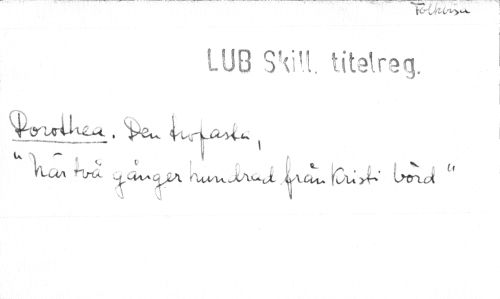 Folkvisa
LUB Skill. titelreg.
Dorothea. Den trofasta,
"När två gånger hundrad från Kristi börd"